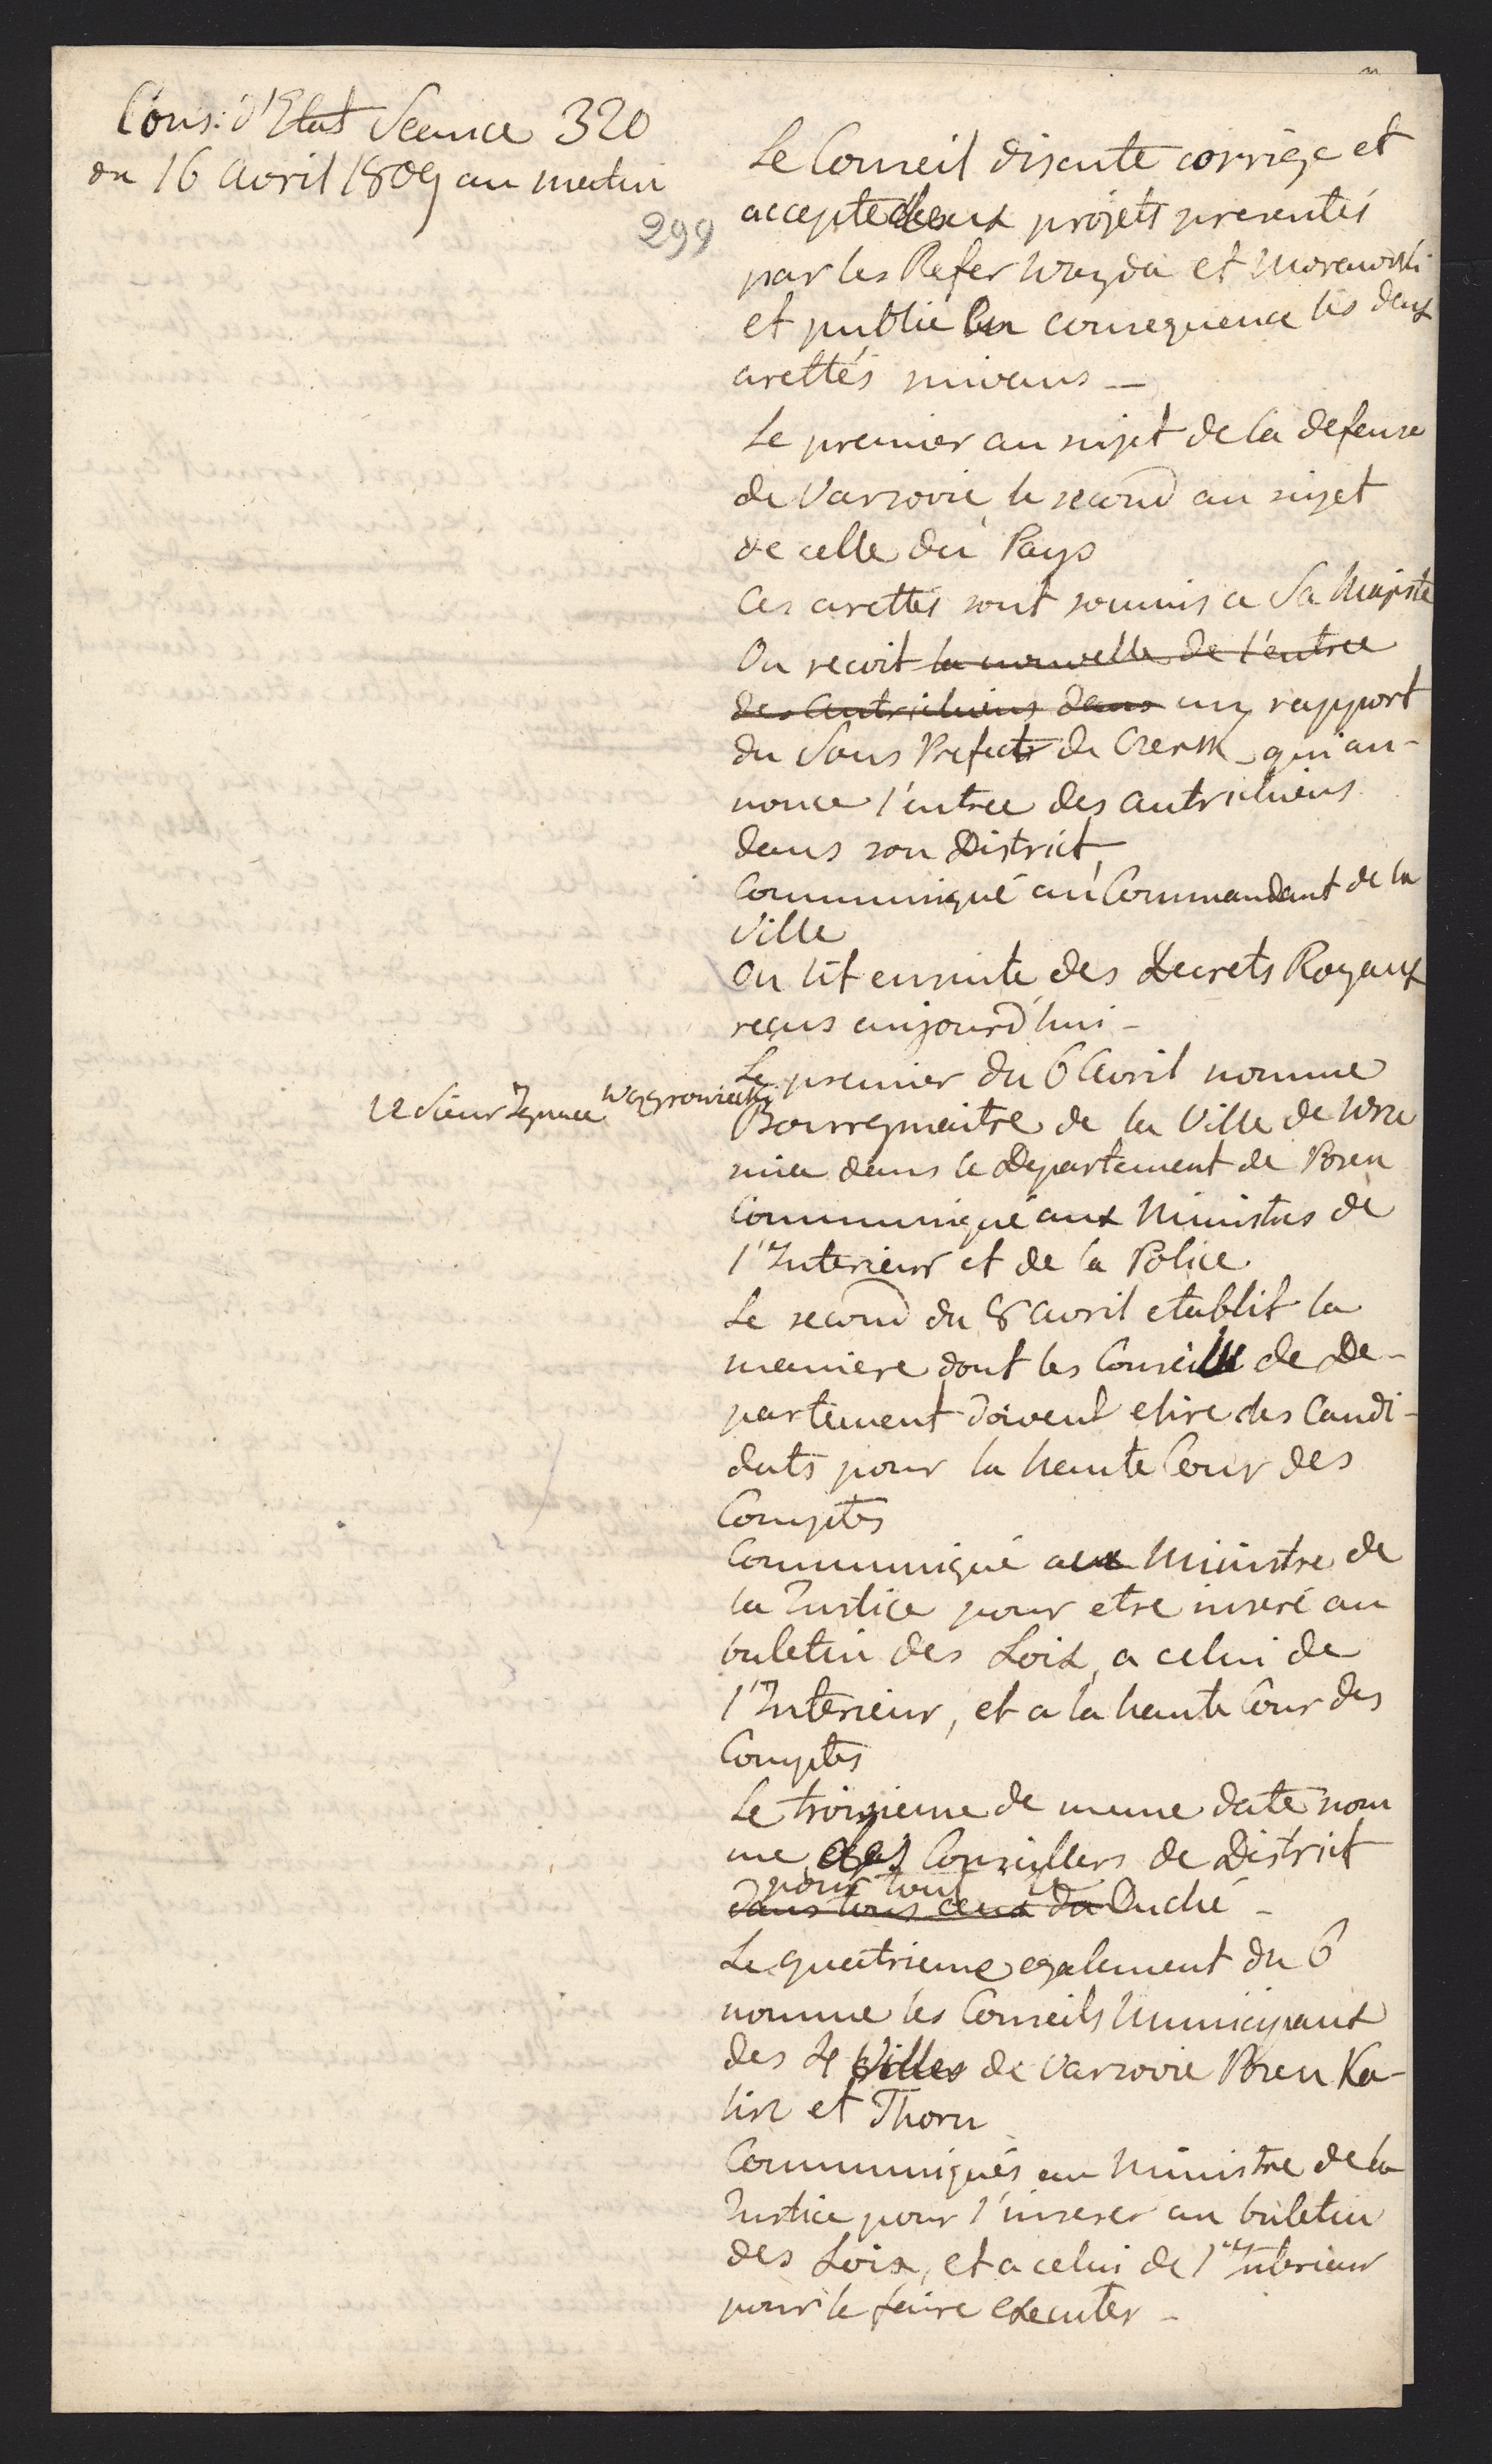 Cons: d'Etat Seance 320
du 16 Avril 1809 au matin
299
Le Conseil discute corrige et
accepte deux projets presentés
par les Refer Woyda et Morawski
et publie en consequence les deux
arettés suivans —
Le premier au sujet de la defense
de Varsovie, le second au sujet
de celle du Pays
Ces arettés sont soumis a Sa Majesté
On recoit la nouvelle de l'entree
des Autrichiens dans un rapport
du Sous Prefect de Czersk qui an-
nonce l'entree des Autrichiens
dans son District
Communiqué au Commandant de la
Ville
On lit ensuite des Decrets Royaux
reçus aujourd'hui -
Le premier du 6 Avril nomme
le Sieur Ignace Wągrowiecki
Bourgmaitre de la Ville de Wro
nia dans le Departement de Posen
Communiqué aux Ministres de
l'Interieur et de la Police
Le second du 8 Avril etablit la
maniere dont les Conseils de De-
partement doivent elire des Candi-
dats pour la haute Cour des
Comptes
Communiqué au Ministre de
la Justice pour etre inseré au
buletin des Loix, a celui de
l'Interieur, et a la haute Cour des
Comptes
Le troisieme de meme date nom
me des Conseillers de District
pour tout le
dans tous ceux du Duché -
Le quatrieme egalement du 6
nomme les Conseils Municipaux
des 4 Villes de Varsovie Posen Ka-
lisz et Thorn
Communiqués au Ministre de la
Justice pour l'inserer au buletin
des Loix, et a celui de l'Interieur
pour le faire executer -